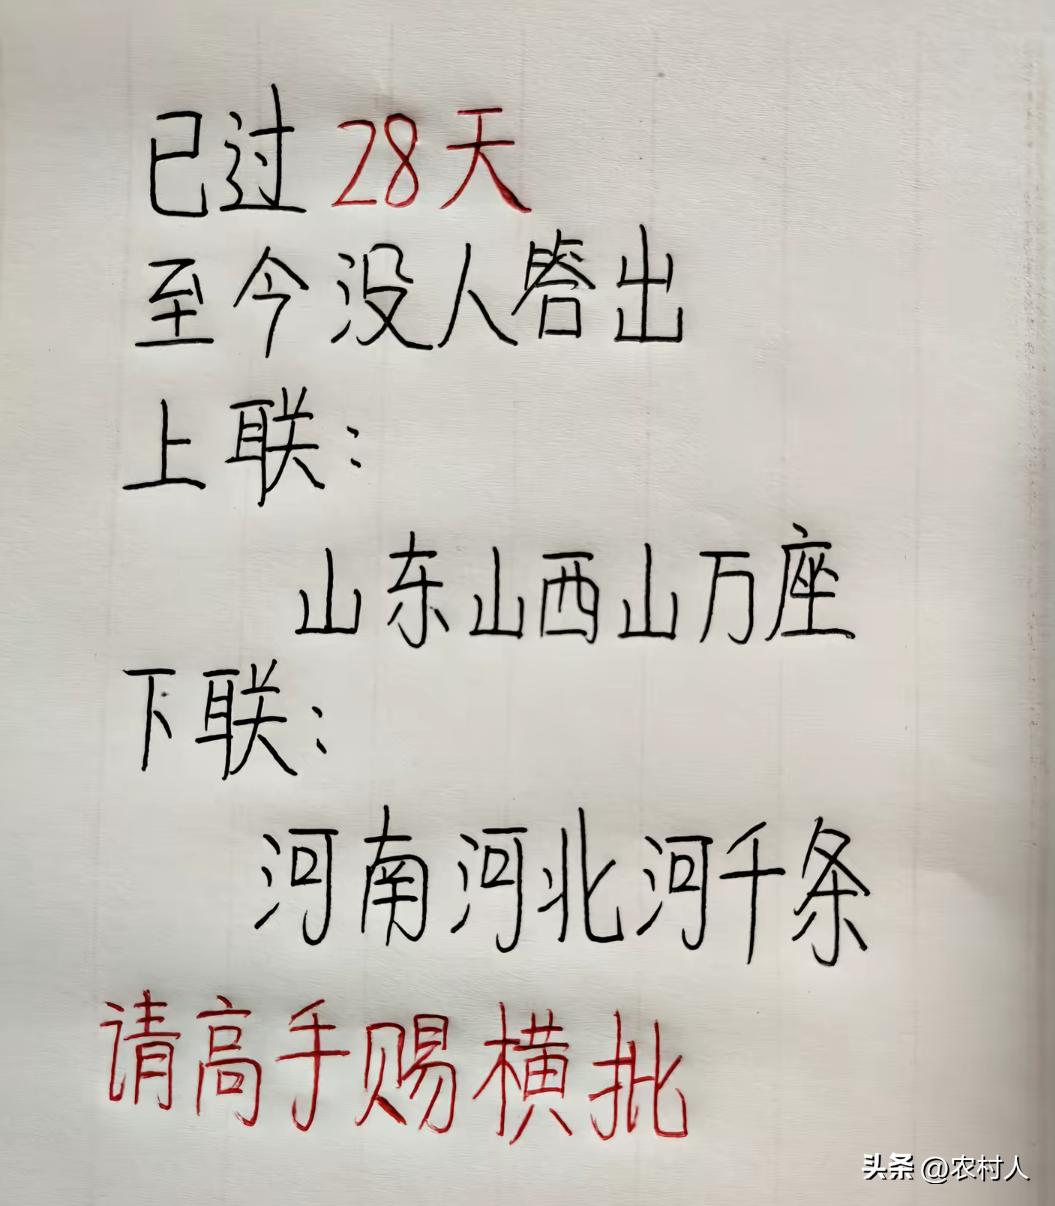 已过28天
至今没人答出
上联:
山东山西山万座
下联:
河南河北河千条
请高手赐横批
头条 @农村人